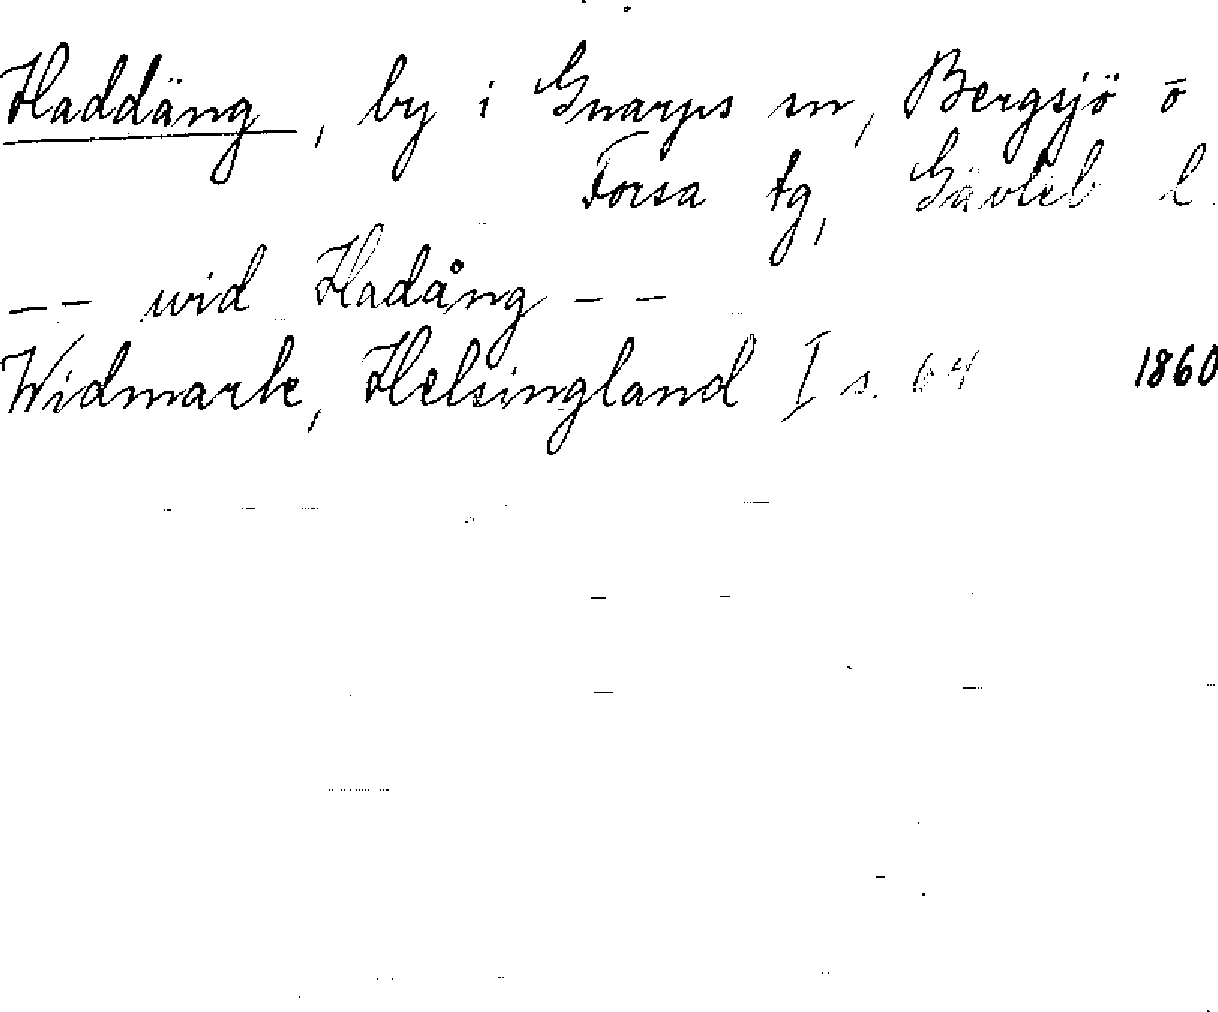 Haddäng, by i Gnarps sn, Bergsjö o
Forsa tg, Gävleb l.
-- wid Hadång --
Widmark, Helsingland I s. 64 1860